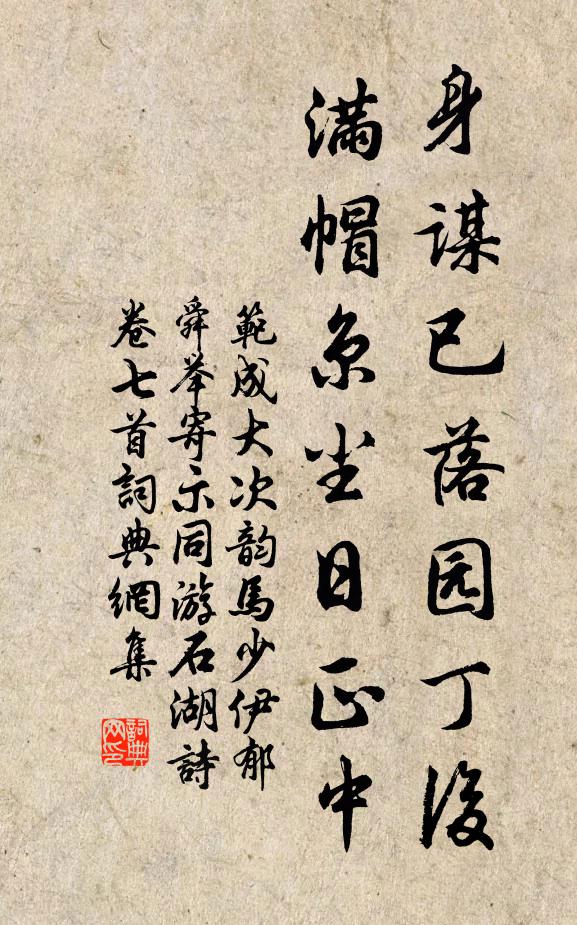 身謀已落园丁後
滿帽京尘日正中
範成大次韵馬少伊郁
舜举寄示同游石湖詩
卷七首詞典網集
詞典网印